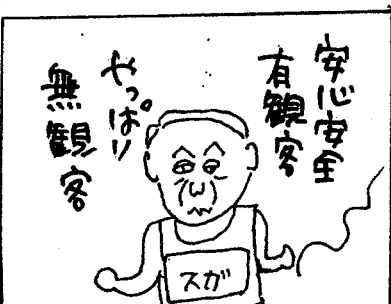 安心安全
有観客
やっぱり
無観客
スガ